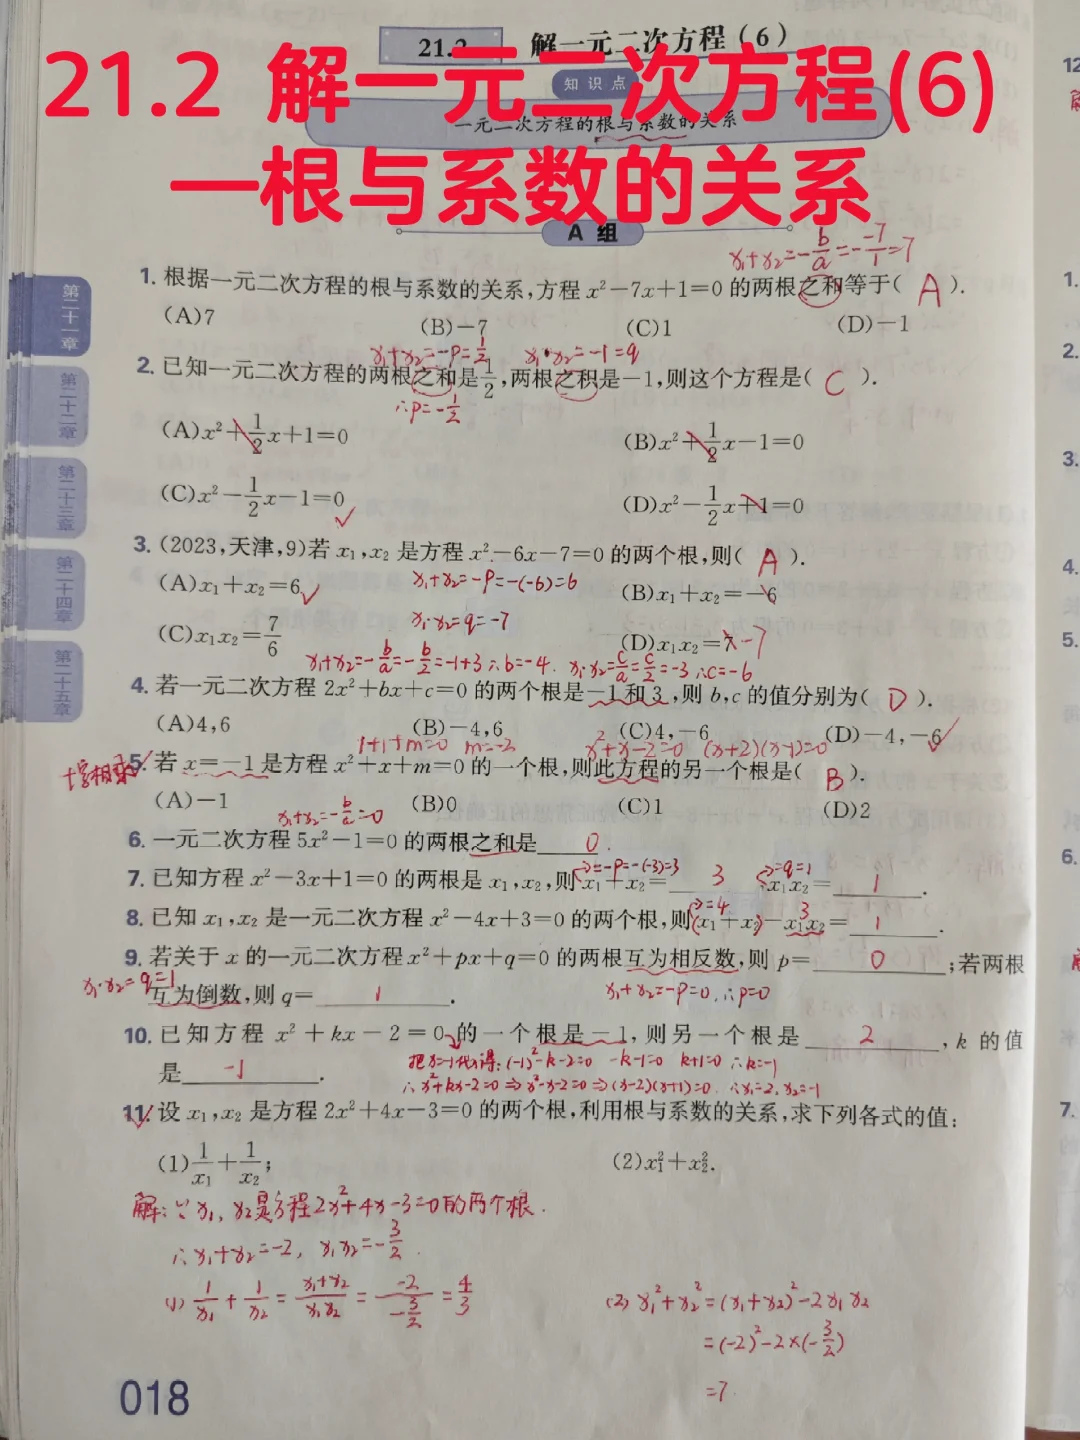 21.2 解一元二次方程(6)
21.2 解一元二次方程(6)
知识点
一元二次方程的根与系数的关系
—根与系数的关系
A 组
x₁+x₂=-b/a=-(-7)/1=7
1. 根据一元二次方程的根与系数的关系,方程 x²-7x+1=0 的两根之和等于( A ).
(A)7 (B)-7 (C)1 (D)-1
x₁+x₂=-p=1/2 x₁·x₂=-1=q
2. 已知一元二次方程的两根之和是1/2,两根之积是-1,则这个方程是( C ).
∴p=-1/2
(A)x²+1/2x+1=0 (B)x²+1/2x-1=0
(C)x²-1/2x-1=0 ✓ (D)x²-1/2x+1=0
3. (2023,天津,9)若 x₁,x₂ 是方程 x²-6x-7=0 的两个根,则( A ).
(A)x₁+x₂=6 ✓ x₁+x₂=-p=-(-6)=6 (B)x₁+x₂=-6
x₁·x₂=q=-7
(C)x₁x₂=7/6 (D)x₁x₂=7 -7
x₁+x₂=-b/a=-b/2=-1+3 ∴b=-4. x₁·x₂=c/a=c/2=-3 ∴c=-6
4. 若一元二次方程 2x²+bx+c=0 的两个根是-1和3,则 b,c 的值分别为( D ).
(A)4,6 (B)-4,6 (C)4,-6 (D)-4,-6 ✓
1+1+m=0 m=-2 x²+x-2=0 (x+2)(x-1)=0
5. 若 x=-1 是方程 x²+x+m=0 的一个根,则此方程的另一个根是( B ).
(A)-1 (B)0 (C)1 (D)2
x₁+x₂=-b/a=0
6. 一元二次方程 5x²-1=0 的两根之和是 0 .
=-p=-(-3)=3 =q=1
7. 已知方程 x²-3x+1=0 的两根是 x₁,x₂,则 x₁+x₂= 3 ,x₁x₂= 1 .
=4 3
8. 已知 x₁,x₂ 是一元二次方程 x²-4x+3=0 的两个根,则(x₁+x₂)-x₁x₂= 1 .
9. 若关于 x 的一元二次方程 x²+px+q=0 的两根互为相反数,则 p= 0 ;若两根
x₁·x₂=q=1
互为倒数,则 q= 1 . x₁+x₂=-p=0,∴p=0
10. 已知方程 x²+kx-2=0 的一个根是-1,则另一个根是 2 ,k 的值
是 -1 . 把x=-1代入得:(-1)²-k-2=0 -k-1=0 k+1=0 ∴k=-1
∴x²+kx-2=0⇒x²-x-2=0⇒(x-2)(x+1)=0. ∴x₁=2,x₂=-1
11. 设 x₁,x₂ 是方程 2x²+4x-3=0 的两个根,利用根与系数的关系,求下列各式的值:
(1)1/x₁+1/x₂; (2)x₁²+x₂².
解:∵x₁,x₂是方程2x²+4x-3=0的两个根.
∴x₁+x₂=-2, x₁x₂=-3/2.
(1) 1/x₁+1/x₂=(x₁+x₂)/(x₁x₂)=-2/(-3/2)=4/3
(2) x₁²+x₂²=(x₁+x₂)²-2x₁x₂
=(-2)²-2×(-3/2)
=7.
018
第二十一章
第二十二章
第二十三章
第二十四章
第二十五章
12
1.
2.
3.
4.
5.
6.
7.